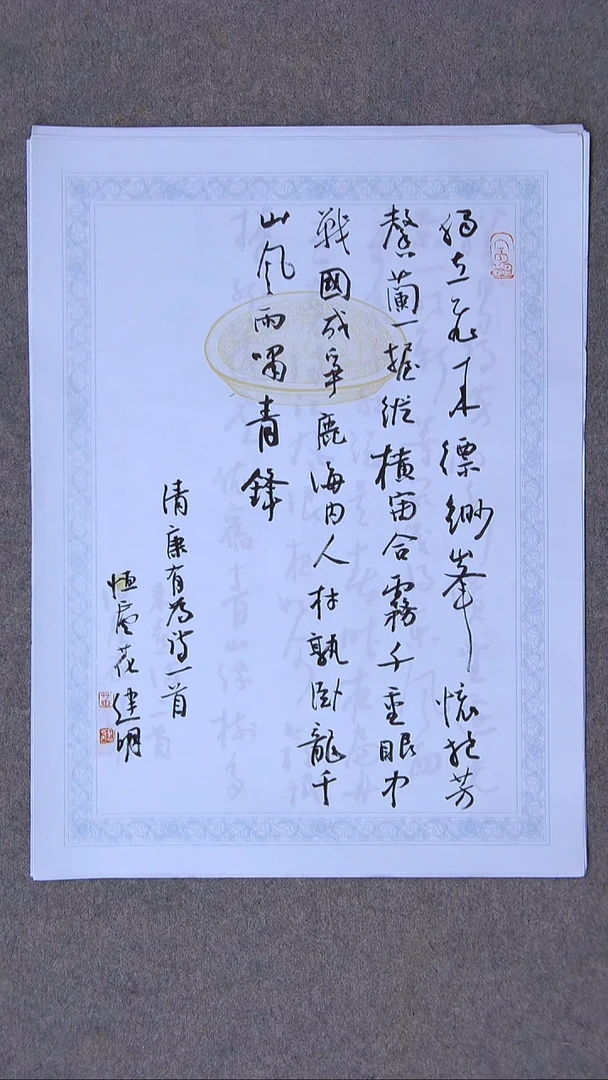 獨立飛来缥缈峯懷抱芳
馨蘭一握縱橫宙合霧千重眼中
戰國成爭鹿海内人材孰卧龍千
山風雨嘯青鋒
清康有為诗一首
恒花建明